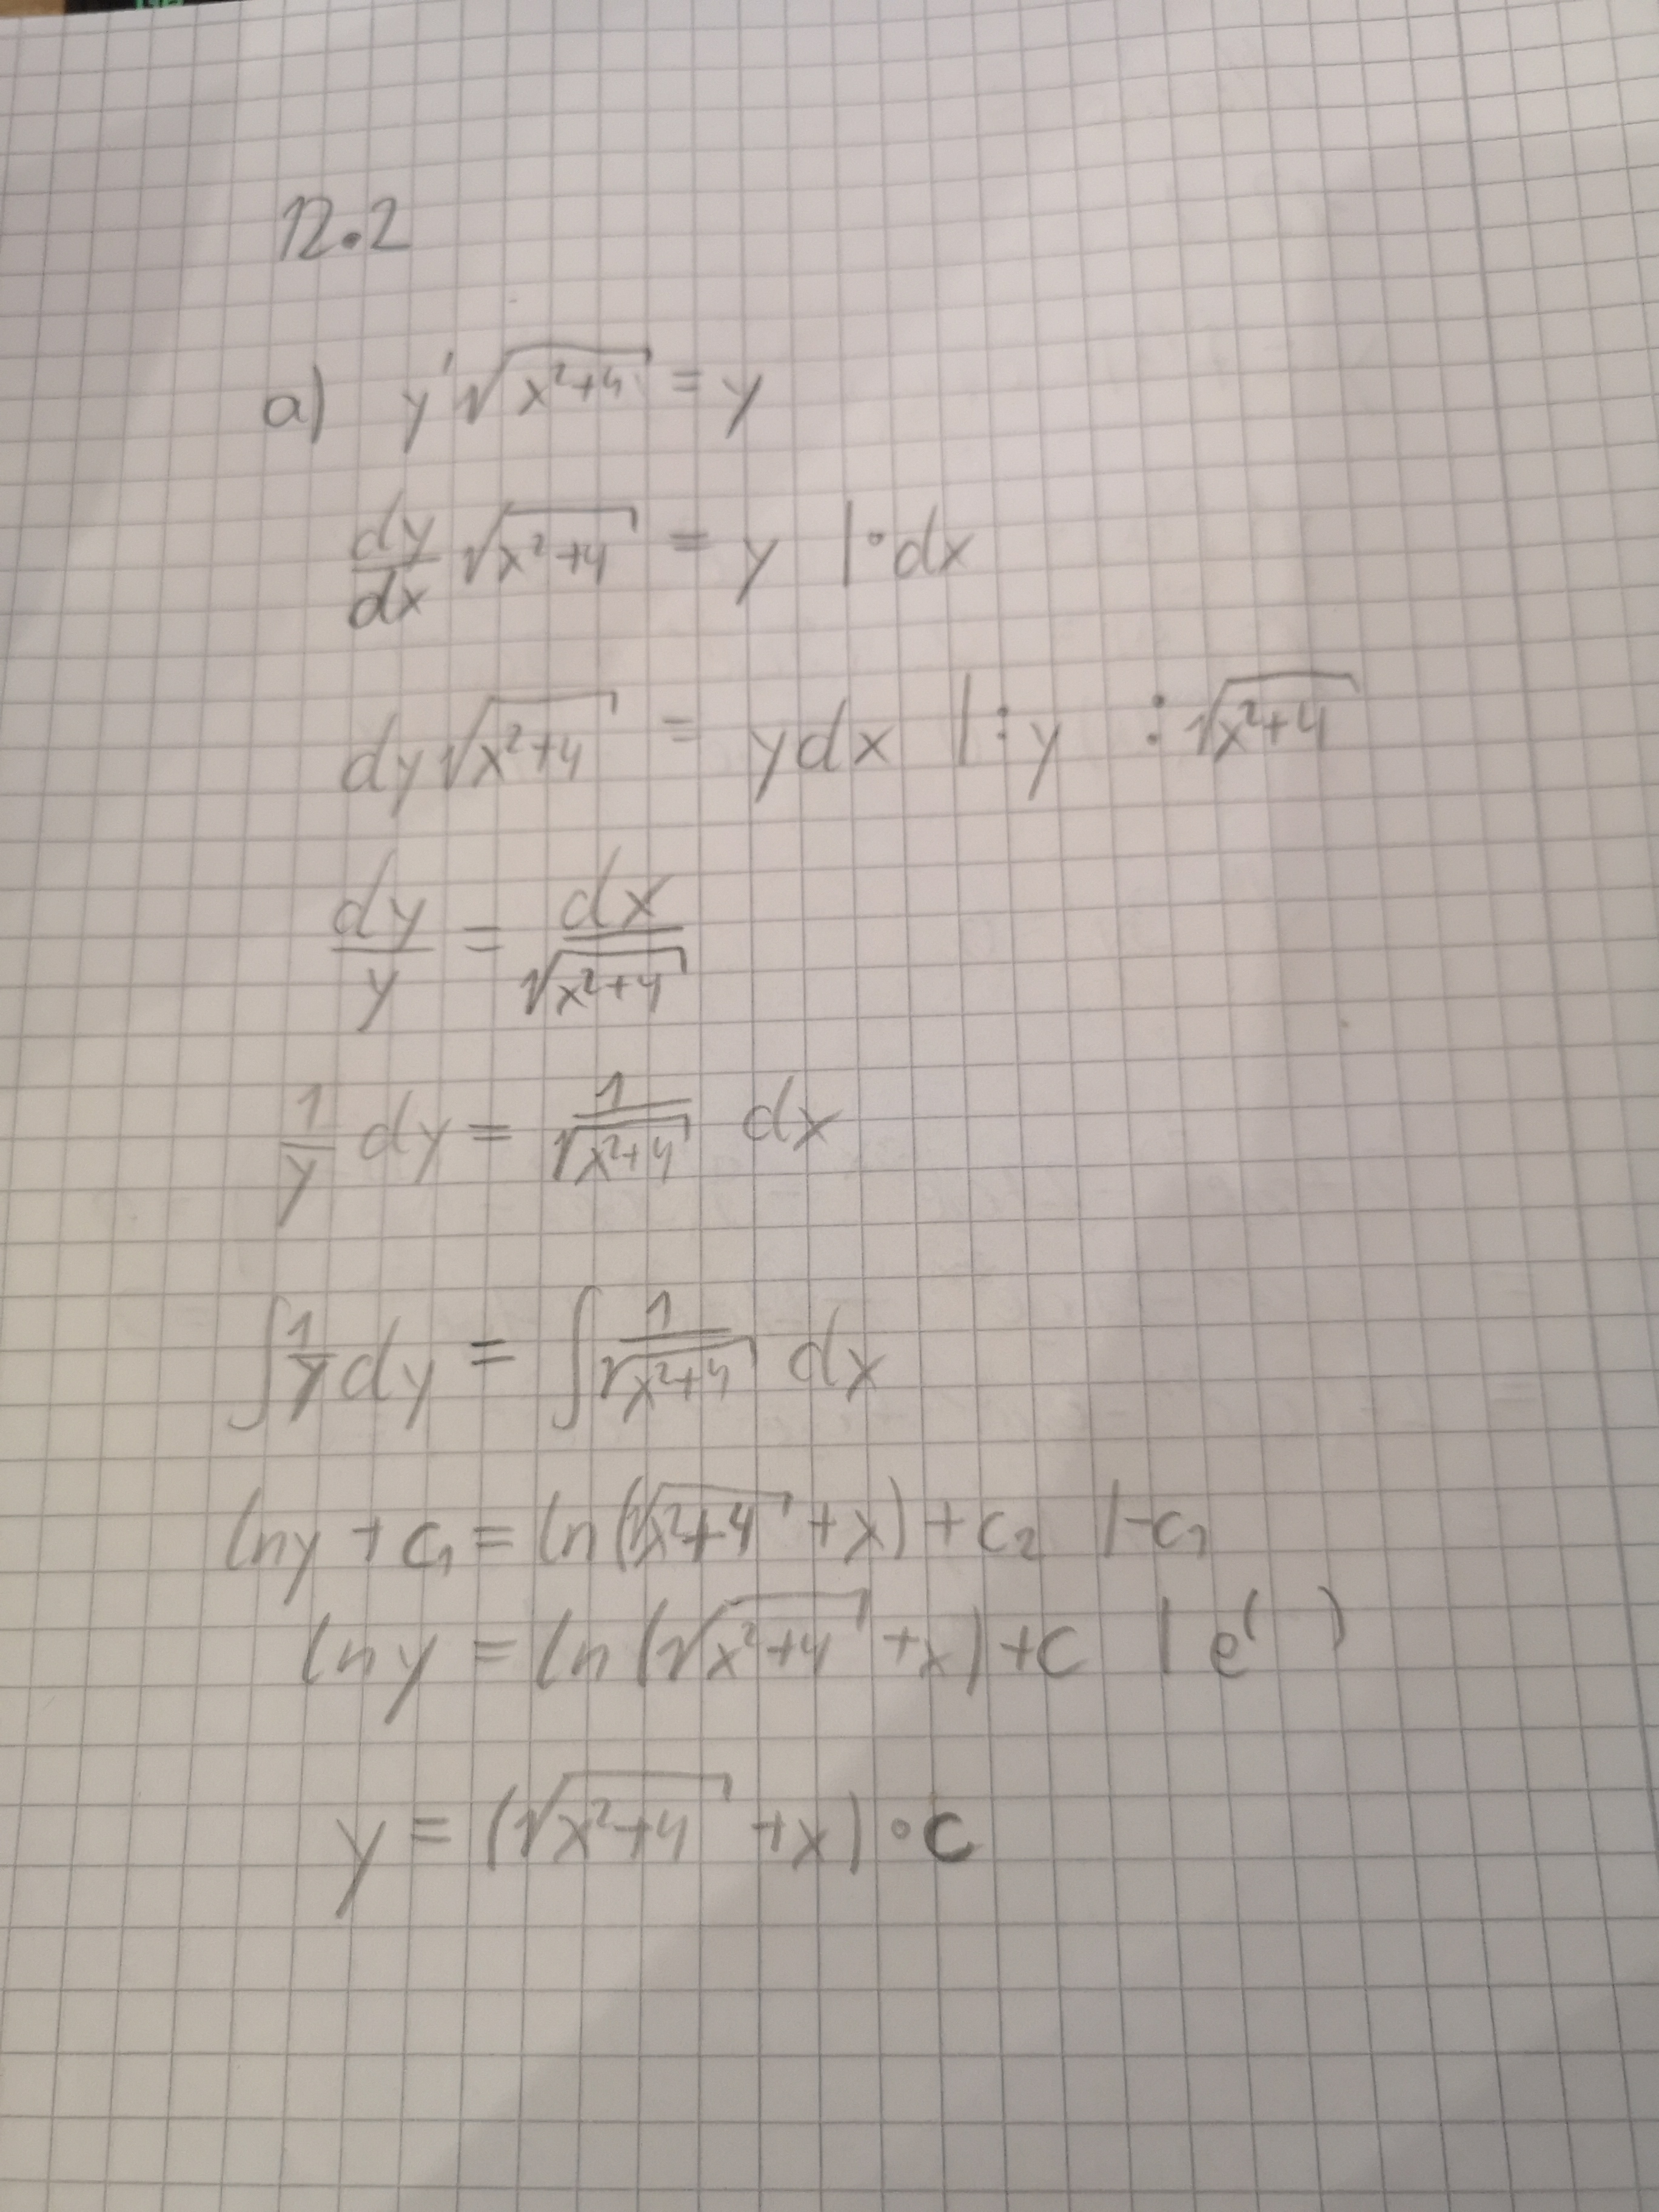 12.2
a) y'√(x²+4) = y
dy/dx √(x²+4) = y |·dx
dy√(x²+4) = ydx |:y :√(x²+4)
dy/y = dx/√(x²+4)
1/y dy = 1/√(x²+4) dx
∫1/y dy = ∫1/√(x²+4) dx
lny + c₁ = ln(√(x²+4) + x) + c₂ |-c₁
ln y = ln(√(x²+4) + x) + c | e^( )
y = (√(x²+4) + x) · c